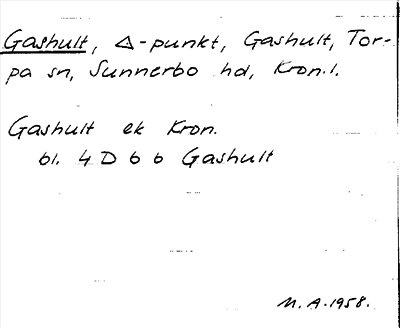 Gashult, Δ-punkt, Gashult, Tor-
pa sn, Sunnerbo hd, Kron.l.
Gashult ek Kron.
bl. 4 D 6 b Gashult
M. A. 1958.